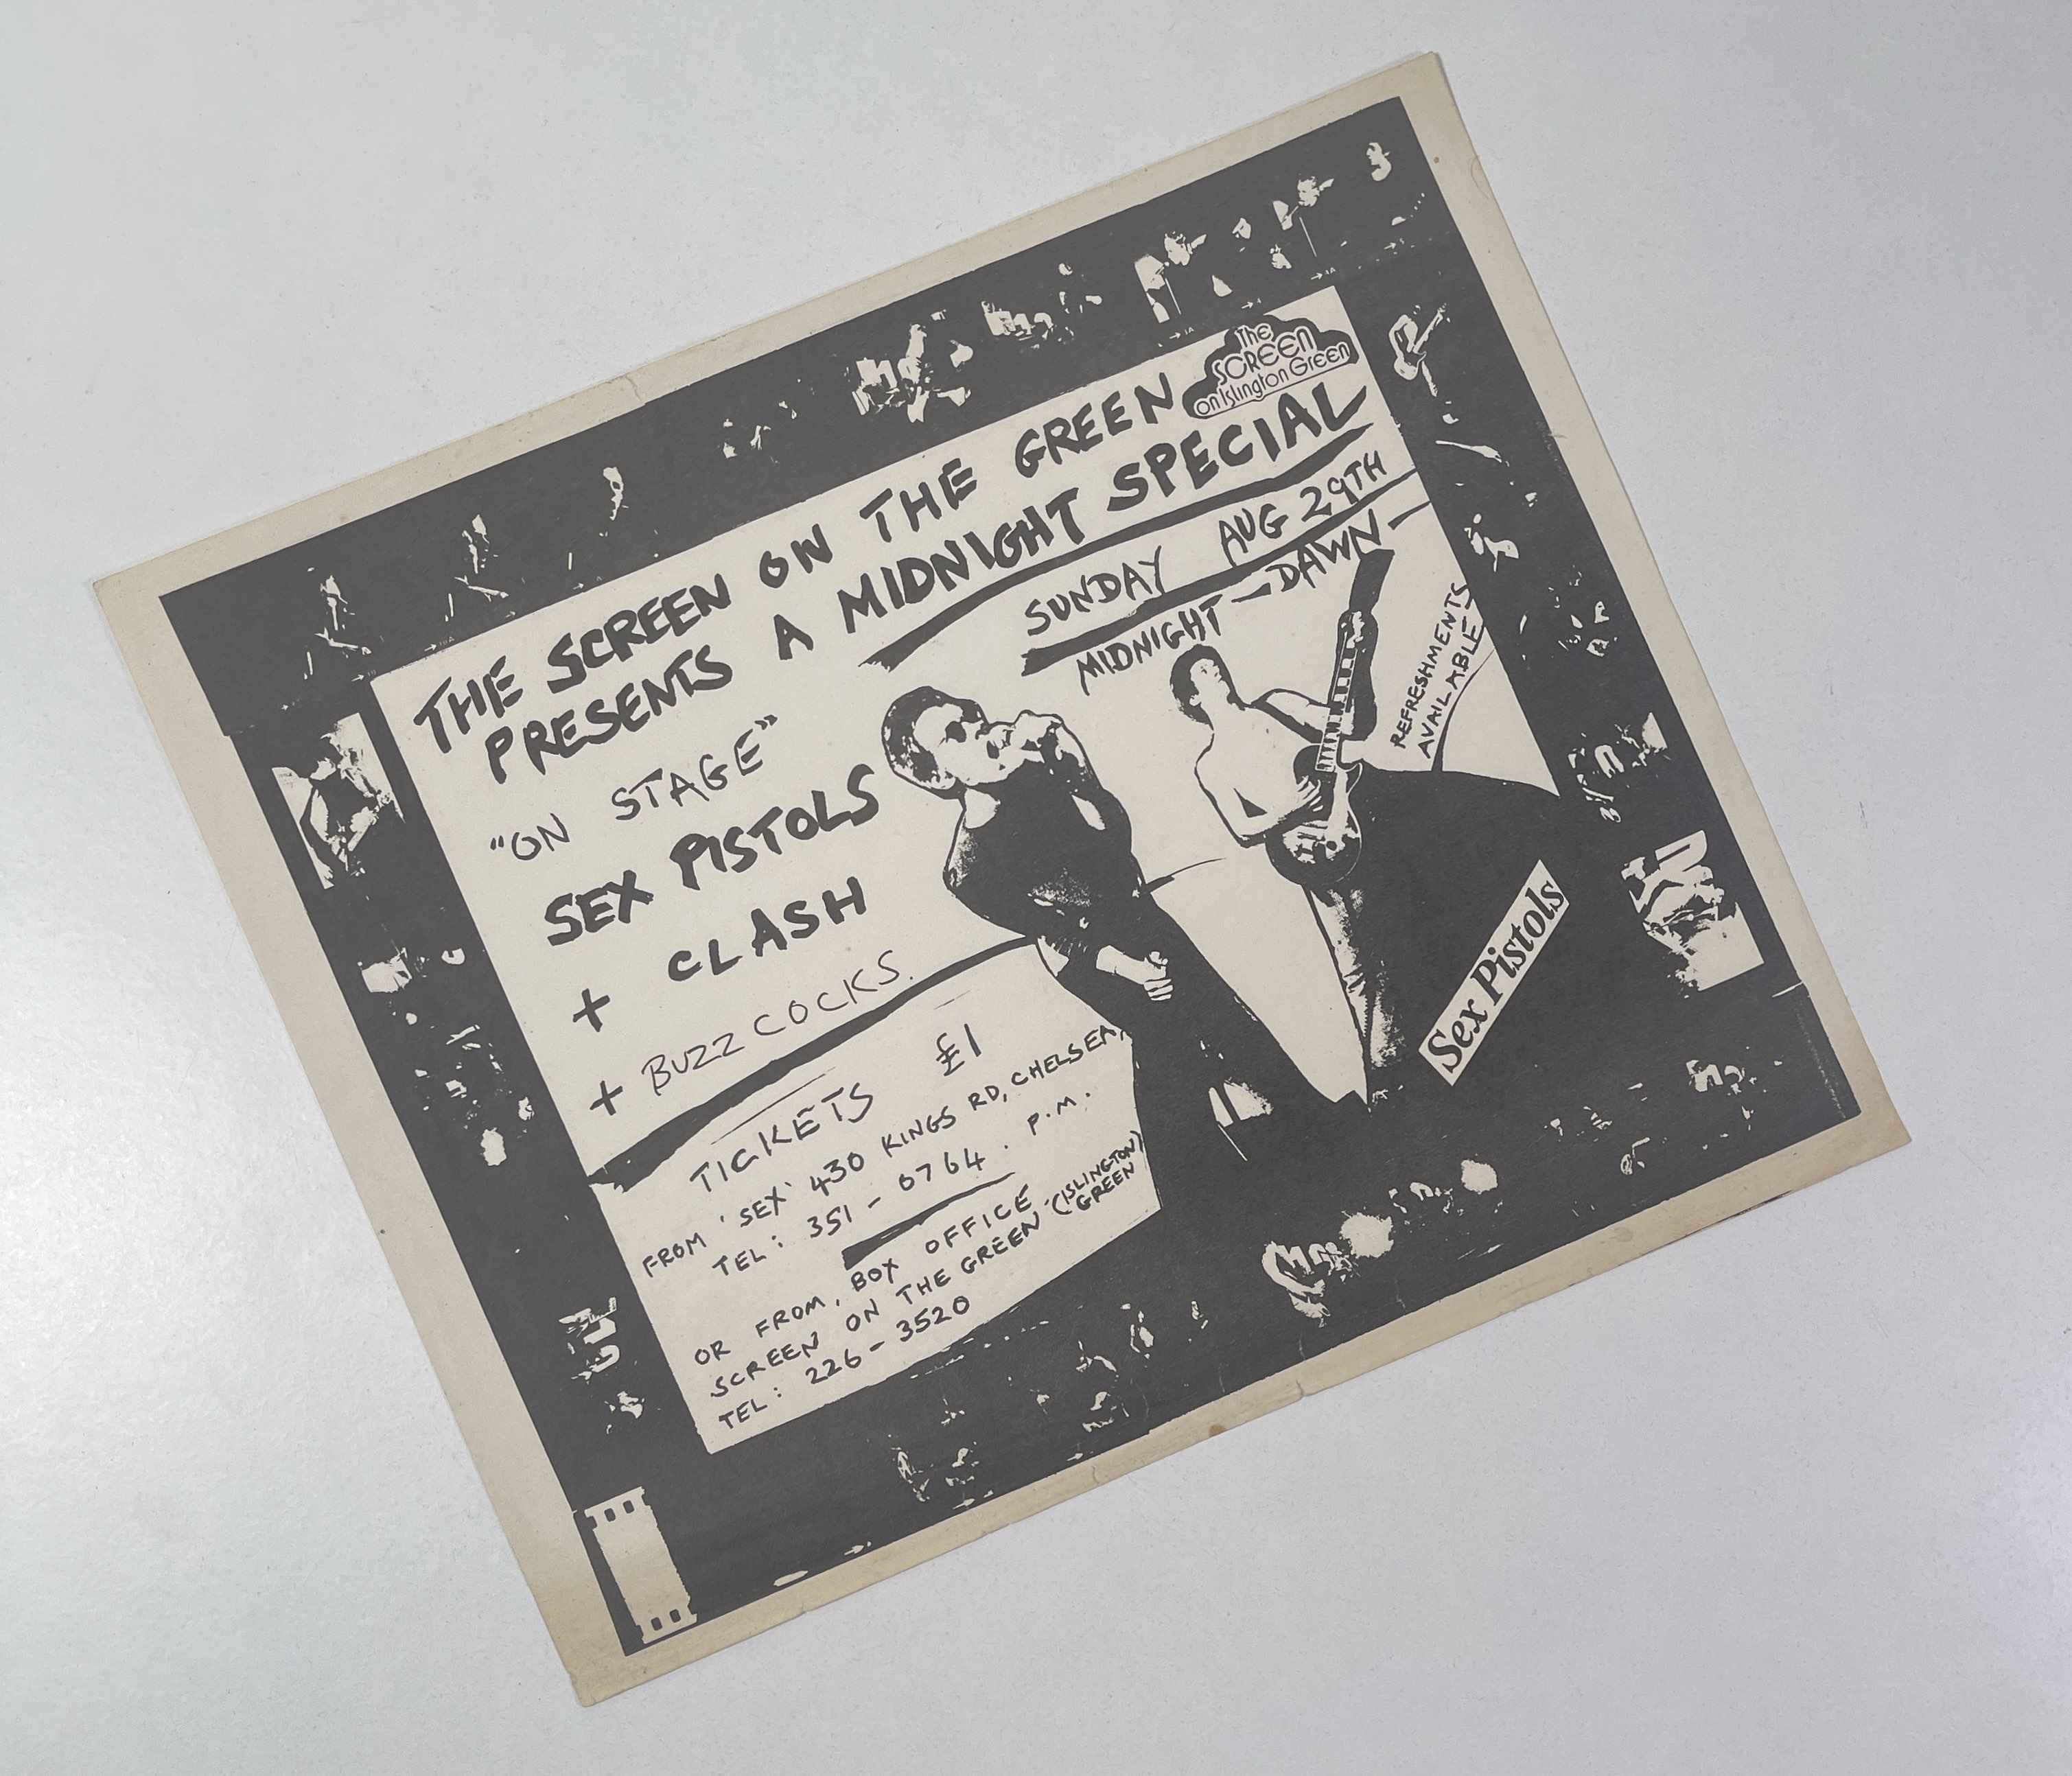 The
SCREEN
on Islington Green
THE SCREEN ON THE GREEN
PRESENTS A MIDNIGHT SPECIAL
SUNDAY AUG 29TH
MIDNIGHT — DAWN —
REFRESHMENTS
AVAILABLE
"ON STAGE"
SEX PISTOLS
+ CLASH
+ BUZZCOCKS.
Sex Pistols
TICKETS £1
FROM 'SEX' 430 KINGS RD, CHELSEA,
TEL: 351-0764. P.M.
OR FROM, BOX OFFICE
SCREEN ON THE GREEN (ISLINGTON
GREEN)
TEL: 226-3520